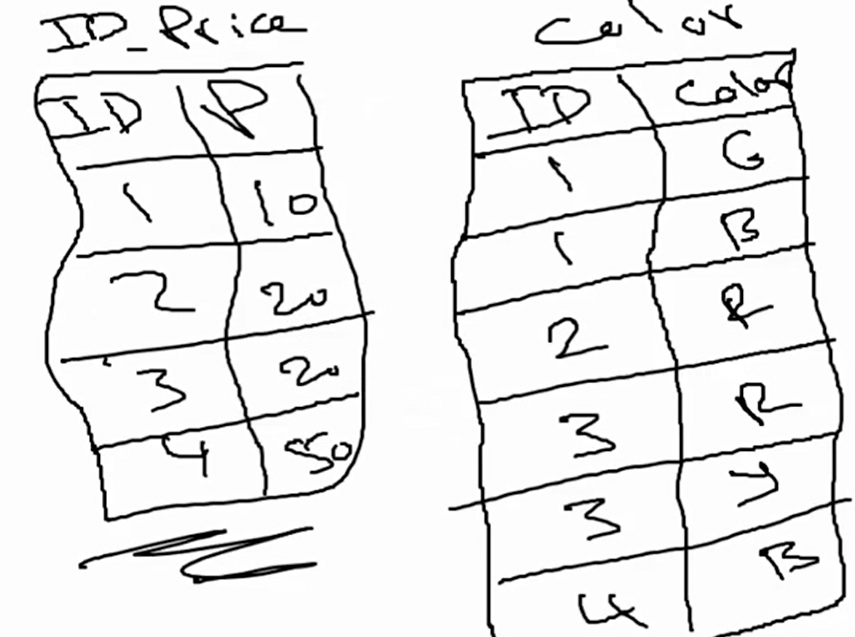 ID_Price
ID P
1 10
2 20
3 20
4 50
Color
ID Color
1 G
1 B
2 R
3 R
3 Y
4 B